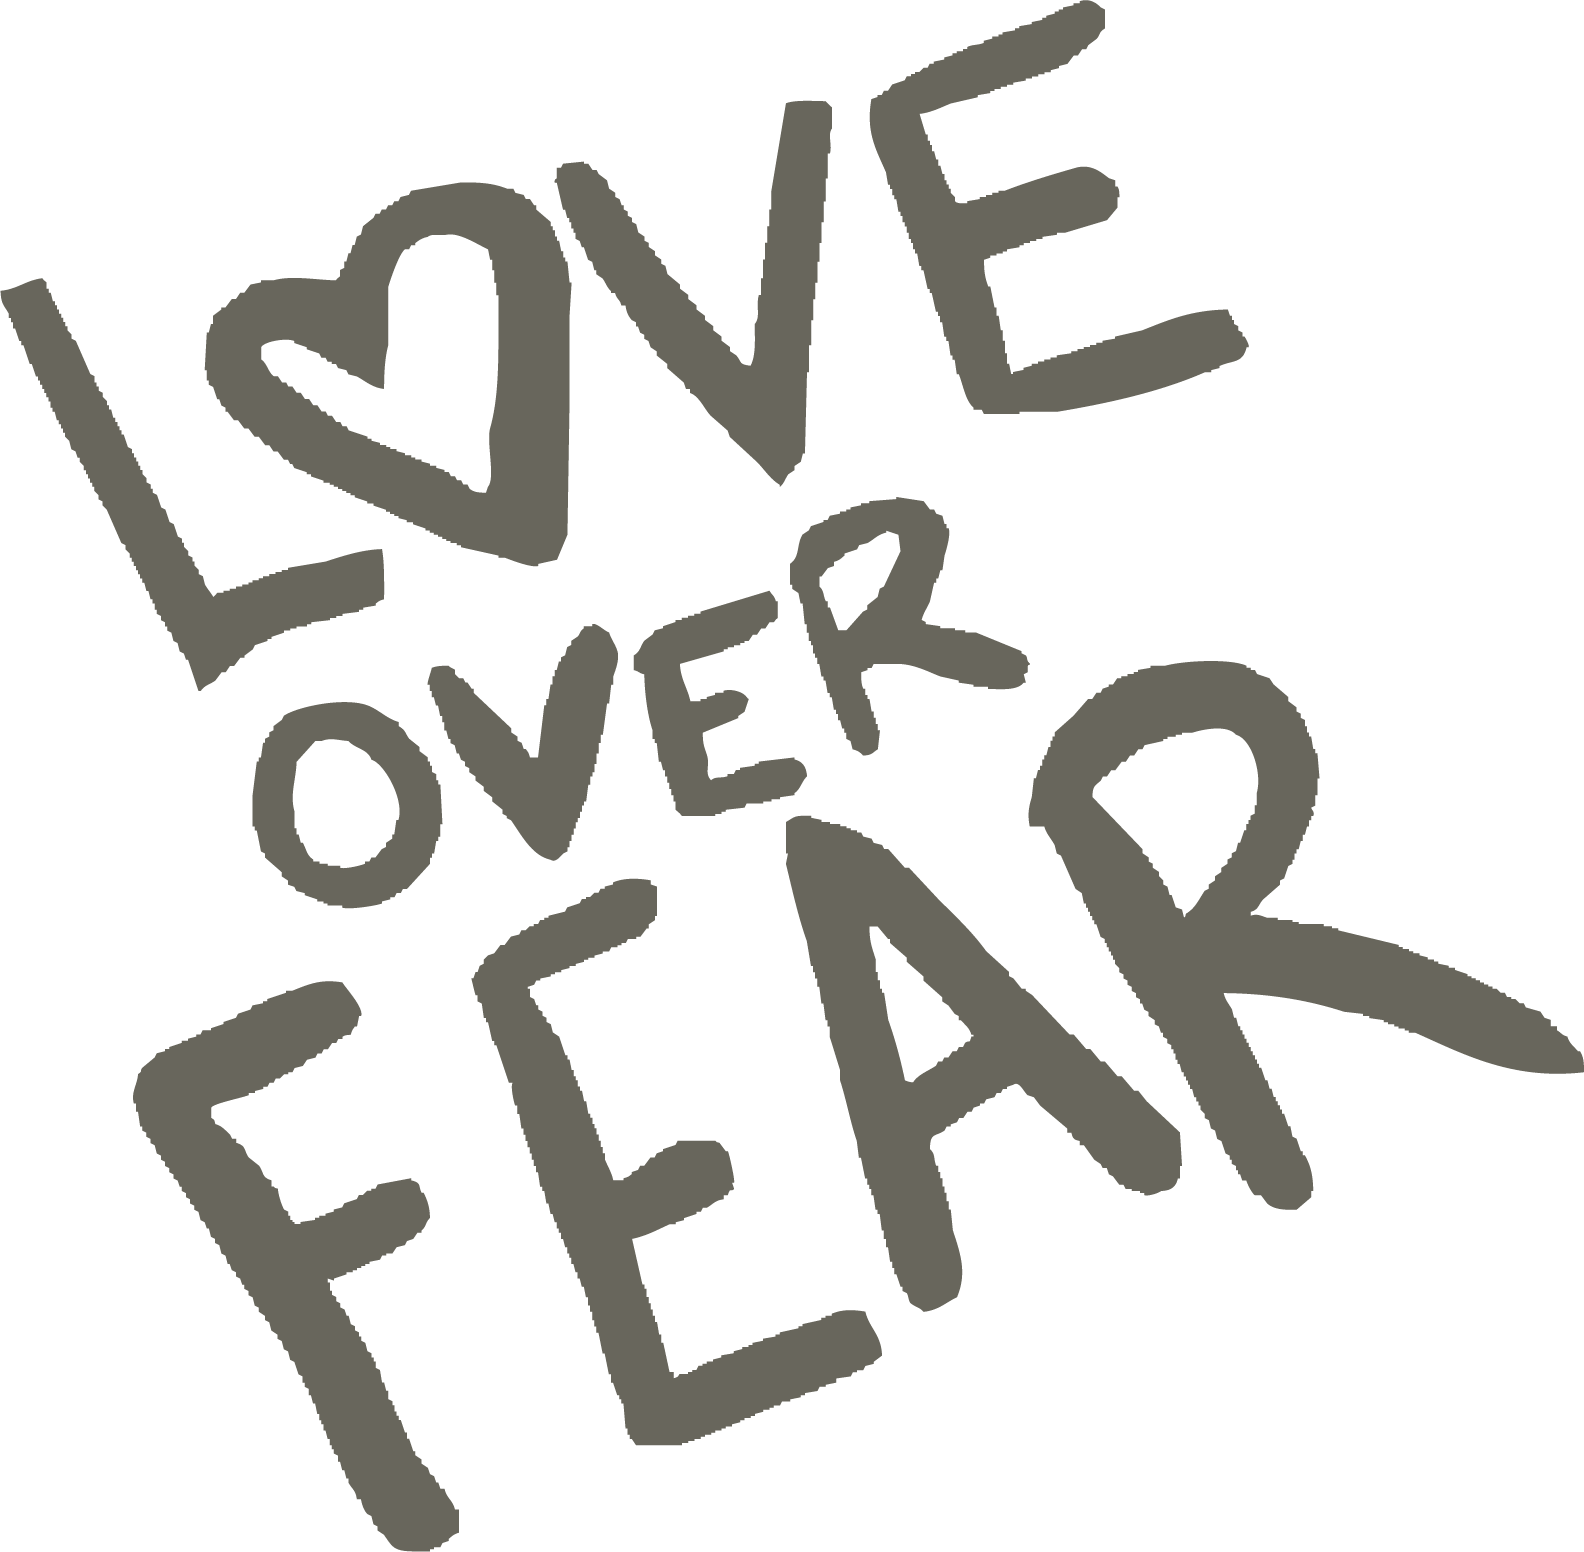 LOVE
OVER
FEAR